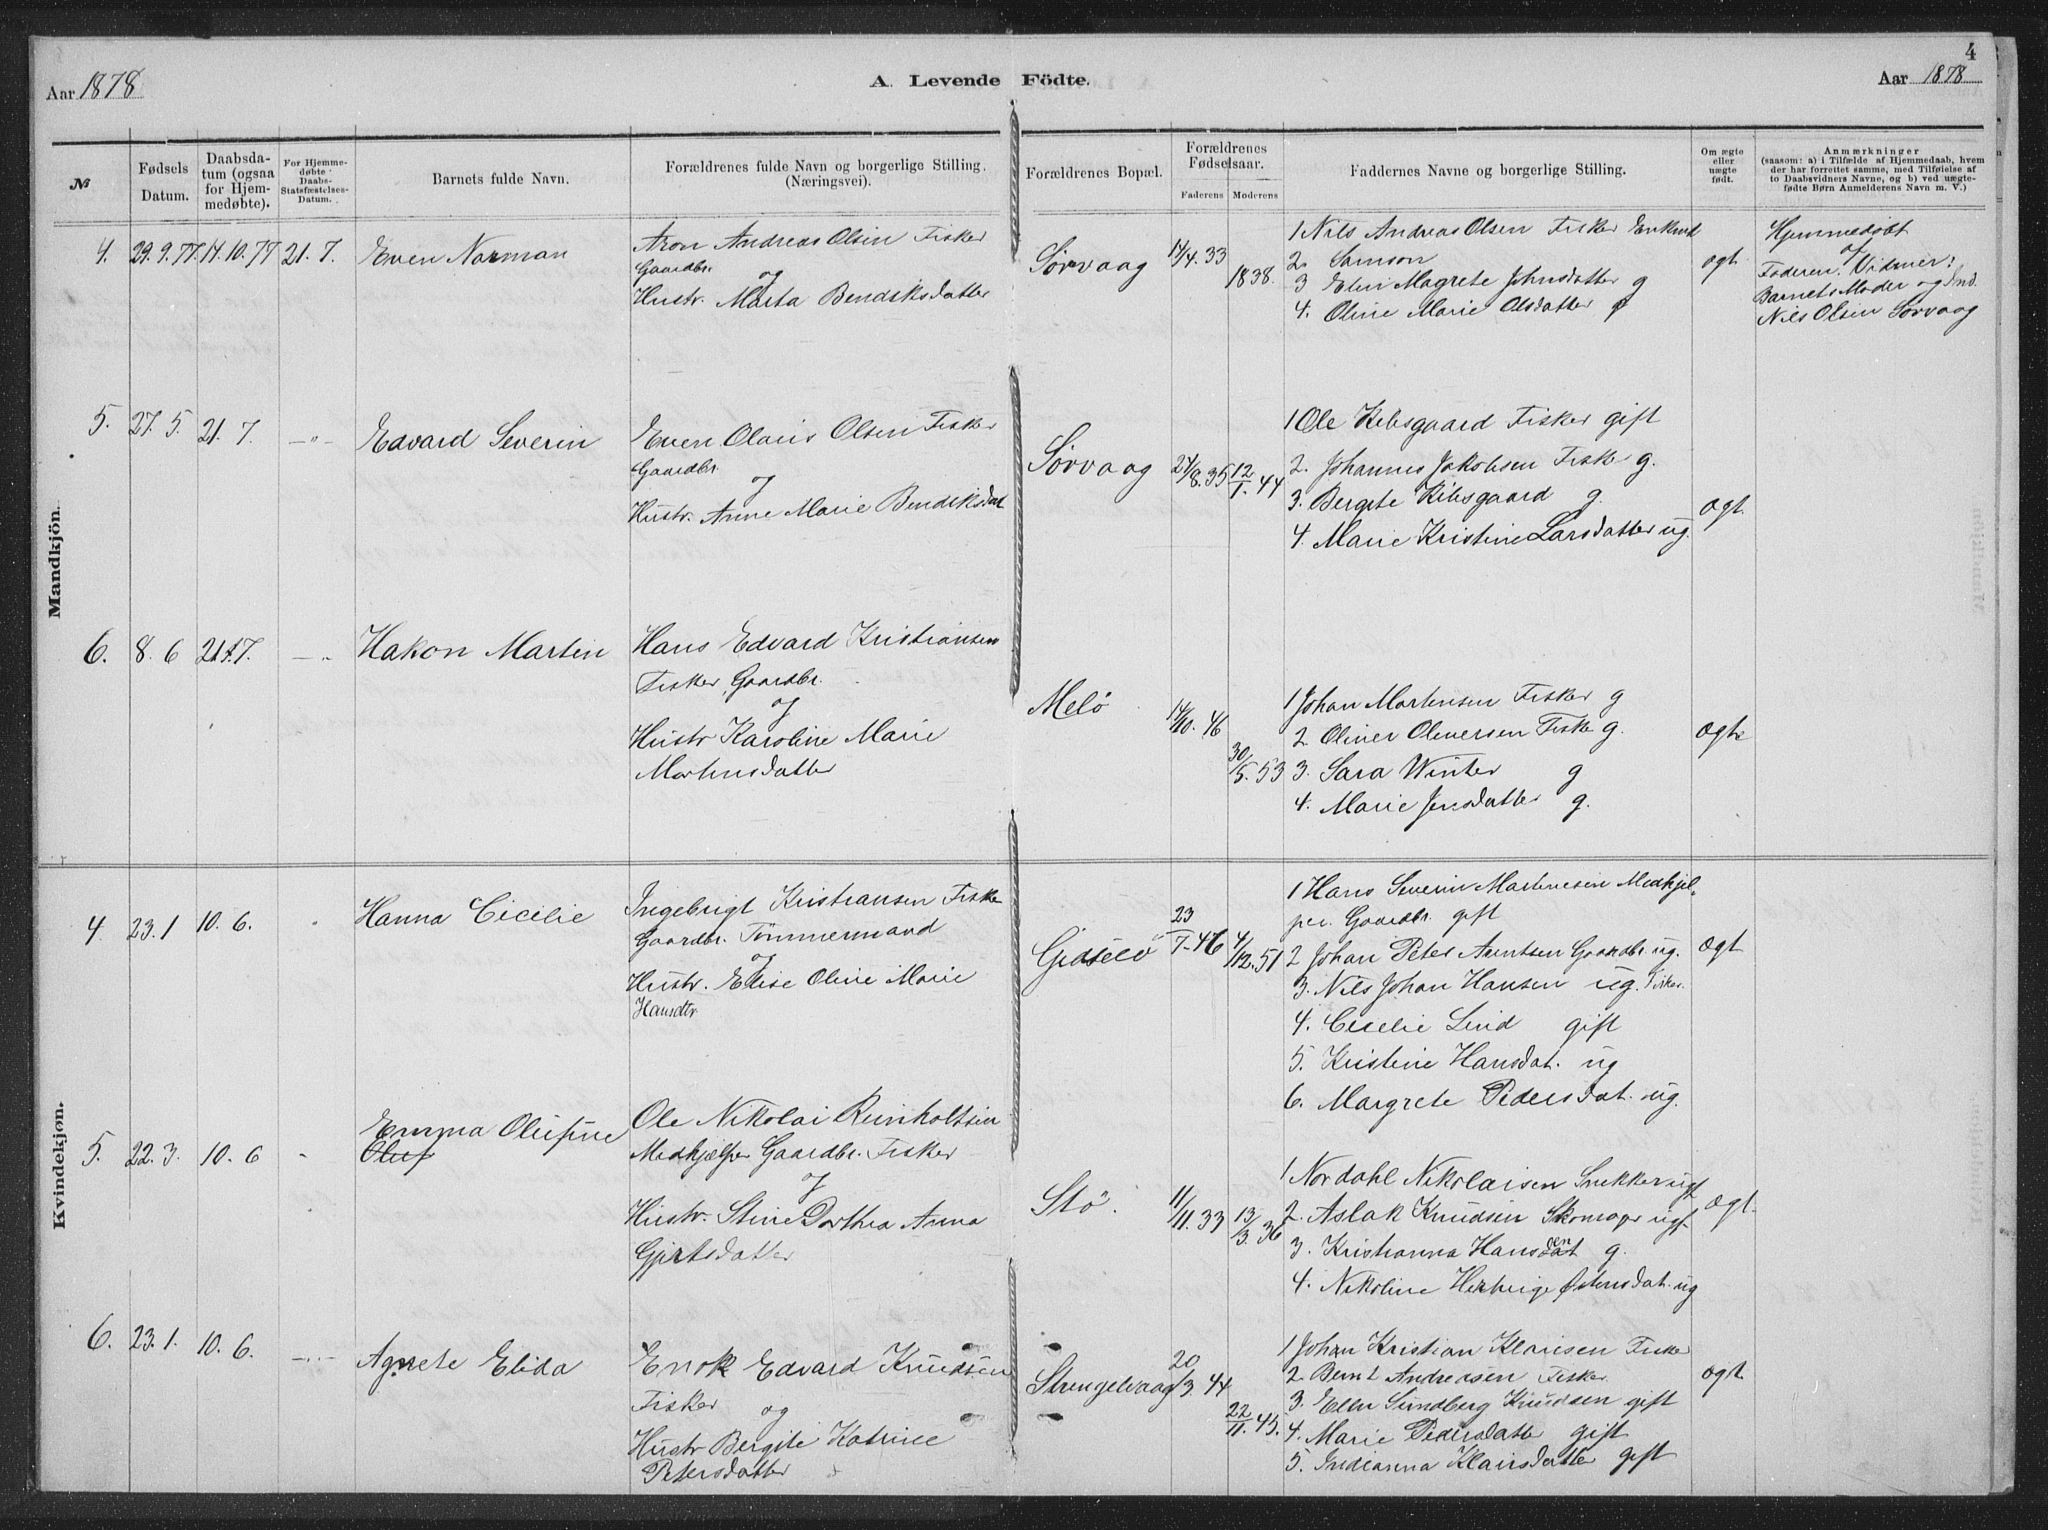 4
Aar 1878
A. Levende Födte.
Aar 1878
№
Fødsels Datum.
Daabsda-
tum (ogsaa
for Hjem-
medøbte).
For Hjemme-
døbte
Daabs-
Statsfæstelses-
Datum.
Barnets fulde Navn.
Forældrenes fulde Navn og borgerlige Stilling.
(Næringsvei).
Forældrenes Bopæl.
Forældrenes
Fødselsaar.
Faderens Moderens
Faddernes Navne og borgerlige Stilling.
Om ægte
eller
uægte
født.
Anmærkninger
(saasom: a) i Tilfælde af Hjemmedaab, hvem
der har forrettet samme, med Tilføielse af
to Daabsvidners Navne, og b) ved uægte-
fødte Børn Anmelderens Navn m. V.)
Mandkjön.
4. 29. 9. 77 14. 10. 77 21. 7. Even Norman
Aron Andreas Olsen Fisker
Gaardbr.
og
Hustr. Marta Bendiksdatter
Sørvaag 14/4. 33 1838.
1 Nils Andreas Olsen Fisker Enkmd
2. Samson
3 Elen Magrete Johnsdatter g
4. Oline Marie Olsdatter g
ogt
Hjemmedøbt
af
Faderen. Vidner:
Barnets Moder og Ind.
Nils Olsen Sørvaag
5. 27. 5. 21. 7. —"— Edvard Severin
Even Olaus Olsen Fisker
Gaardbr.
og
Hustr. Anne Marie Bendiksdat
Sørvaag 24/8. 35 12/1. 44
1 Ole Kibsgaard Fisker gift
2. Johannes Jakobsen Fiske g.
3. Bergete Kibsgaard g.
4. Marie Kristine Larsdatter ug.
ogt
6. 8. 6 21. 7. —"— Hakon Martin
Hans Edvard Kristiansen
Fisker, Gaardbr.
og
Hustr Karoline Marie
Martensdatter
Melö 14/10. 46 30/5. 53
1 Johan Martensen Fisker g
2 Oliver Oleversen Fiske g.
3. Sara Winter g
4. Marie Jensdatter g.
ogte
Kvindekjøn.
4. 23. 1 10. 6. " Hanna Cicelie
Ingebrigt Kristiansen Fiske
Gaardbr. Tömmermand
og
Hustr. Elise Oline Marie
Hansdtr
Gidselö 23/7. 46 4/12. 51
1 Hans Severin Martinesen Medhjel-
per. Gaardbr. gift
2 Johan Peter Arntsen Gaardbr. ug.
3. Nils Johan Hansen ug. Fisker.
4. Cecelie Lind gift
5. Kristine Hansdat. ug
6. Margrete Pedersdat. ug.
ogt
5. 22. 3. 10. 6 " Emma Olufine
Oluf
Ole Nikolai Reinholtsen
Medhjælper Gaardbr. Fisker
og
Hustr. Stine Dorthea Anna
Gjertsdatter
Stö. 11/11. 33 13/3. 36
1 Nordahl Nikolaisen Snekker ugf
2. Aslak Knudsen Skomager ugf
3. Kristianna Hansdat en g.
4. Nikoline Hertvige Østensdat. ug
ogt.
6. 23. 1. 10. 6. —"— Agnete Elida
Enok Edvard Knudsen
Fisker og
Hustr Bergite Katrine
Petersdatter
Strengelvaag 20/3. 44 22/11. 45.
1 Johan Kristian Klausen Fisker
2. Bernt Andreasen Fisker.
3. Ellen Sundberg Knudsen gift
4. Marie Pedersdatter gift
5. Indianna Klausdatter gift
ogt